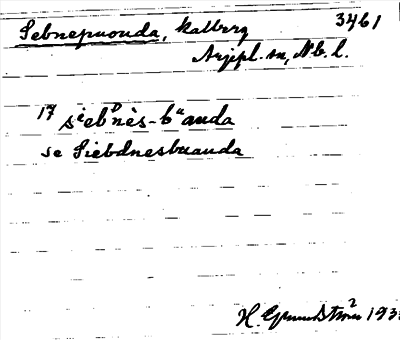 Sebnepuonda, kalberg 3461
Arjepl. sn, Nb. l.
17 sͥebᴰnès-bᵘanda
se Siebdnesbuanda
H. Grundström 193